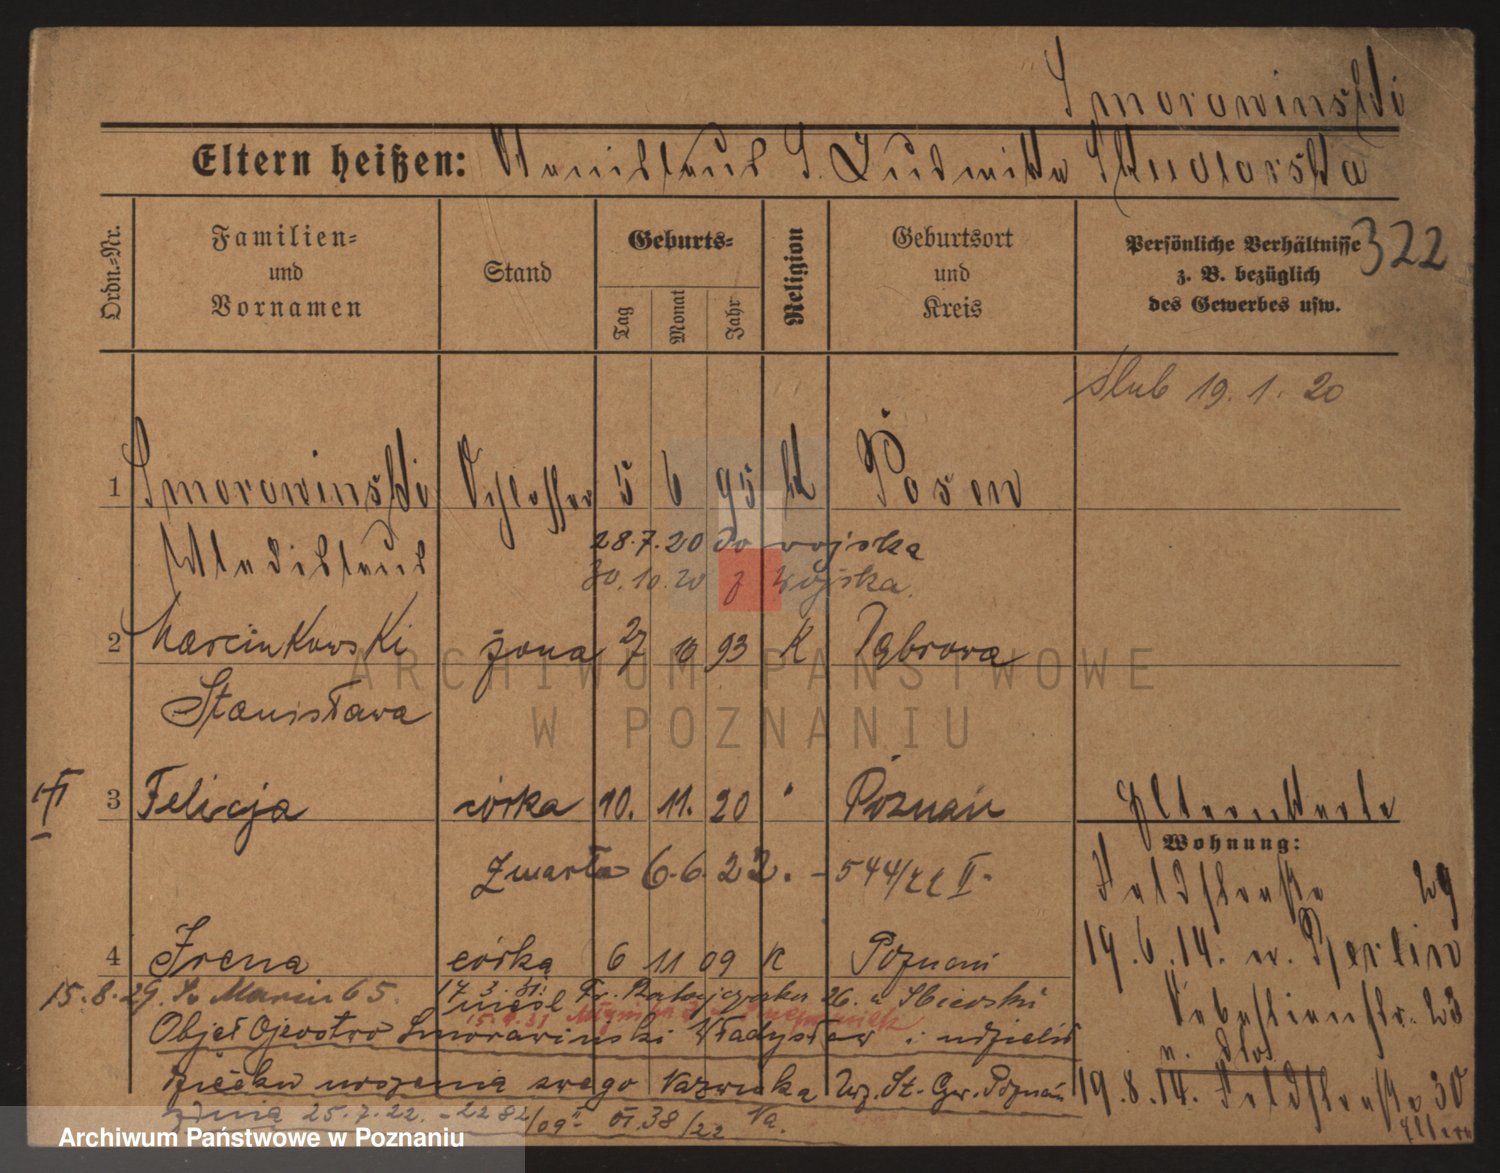 Smorowinski
Eltern heißen: Stanislaus S. Ludwika Skudlarska
Ordn.-Nr.
Familien-
und
Vornamen
Stand
Geburts-
Tag
Monat
Jahr
Religion
Geburtsort
und
Kreis
Persönliche Verhältnisse
z. B. bezüglich
des Gewerbes usw.
322
ślub 19. 1. 20
1 Smorowinski Schlosser 5 6 95 k Posen
Wladislaus 28.7.20 do wojska
30.10.20 z wojska.
2 Marcinkowski żona 27 10 93 K Dąbrowa
Stanisława
3 Felicja córka 10. 11. 20 " Poznań
Elternkarte
Wohnung:
zmarła 6.6.22. - 544/22 II.
Feldstraße 29
4 Irena córka 6 11 09 K Poznań
19.6.14. n. Berlin
15.8.29. Św Marcin 65.
17.3.31. Fr. Ratajczaka 26. u
15.4.31
Sebastianstr. 23
Objął Ojcostwo Smorawinski Władysław i udzielił
dziecku urodzenia swego Nazwiska Urz. St. Cyw. Poznań
19.8.14. Feldstraße 30
Eltern
z dnia 25.7.22. - 2282/09 II VI.38/22 Va.
ARCHIWUM PAŃSTWOWE
W POZNANIU
Archiwum Państwowe w Poznaniu